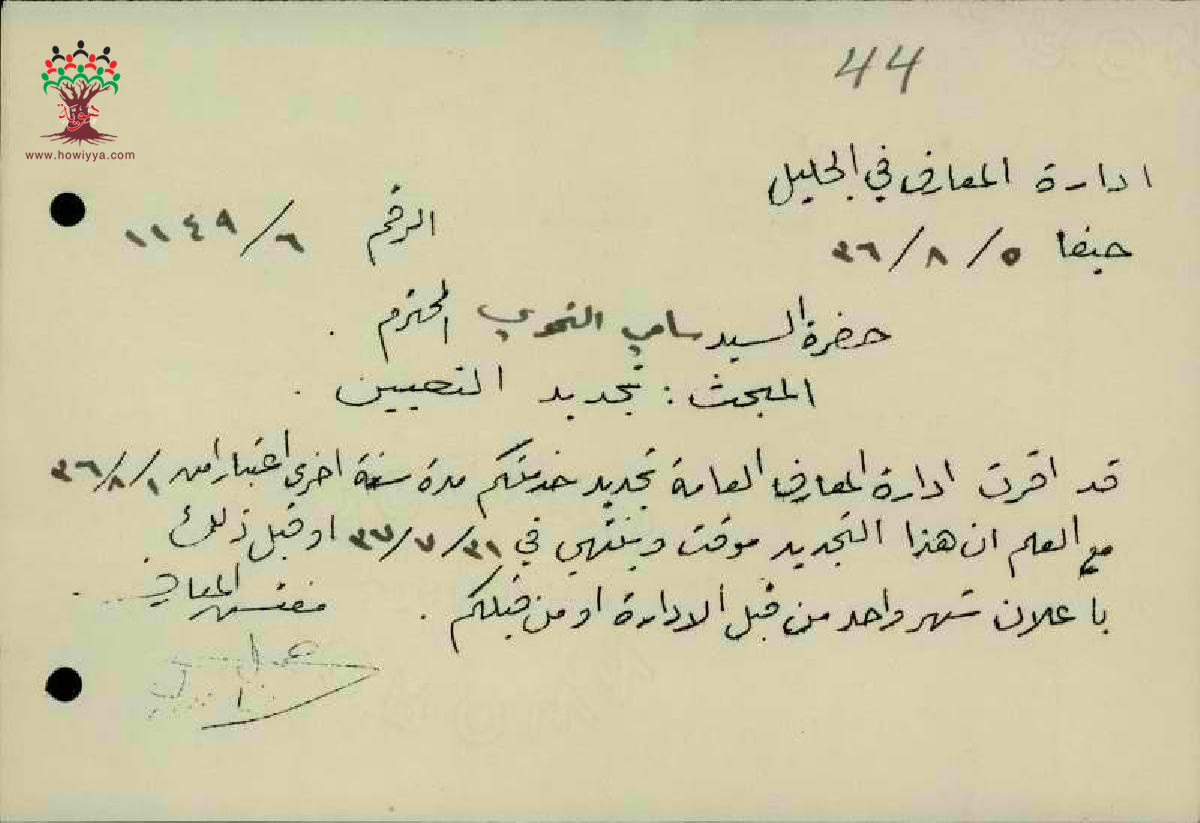 44
هوية
www.howiyya.com
ادارة المعارف في الجليل
حيفا ٥ / ٨ / ٣٦
الرقم ٦ / ١١٤٩
حضرة السيد سامي النحوي المحترم .
المبحث : تجديد التعيين .
قد اقرت ادارة المعارف العامة تجديد خدمتكم مدة سنة اخرى اعتبارا من ١ / ٨ / ٣٦
مع العلم ان هذا التجديد موقت وينتهي في ٣١ / ٧ / ٣٧ او قبل ذلك
باعلان شهر واحد من قبل الادارة او من قبلكم .
مفتش المعارف